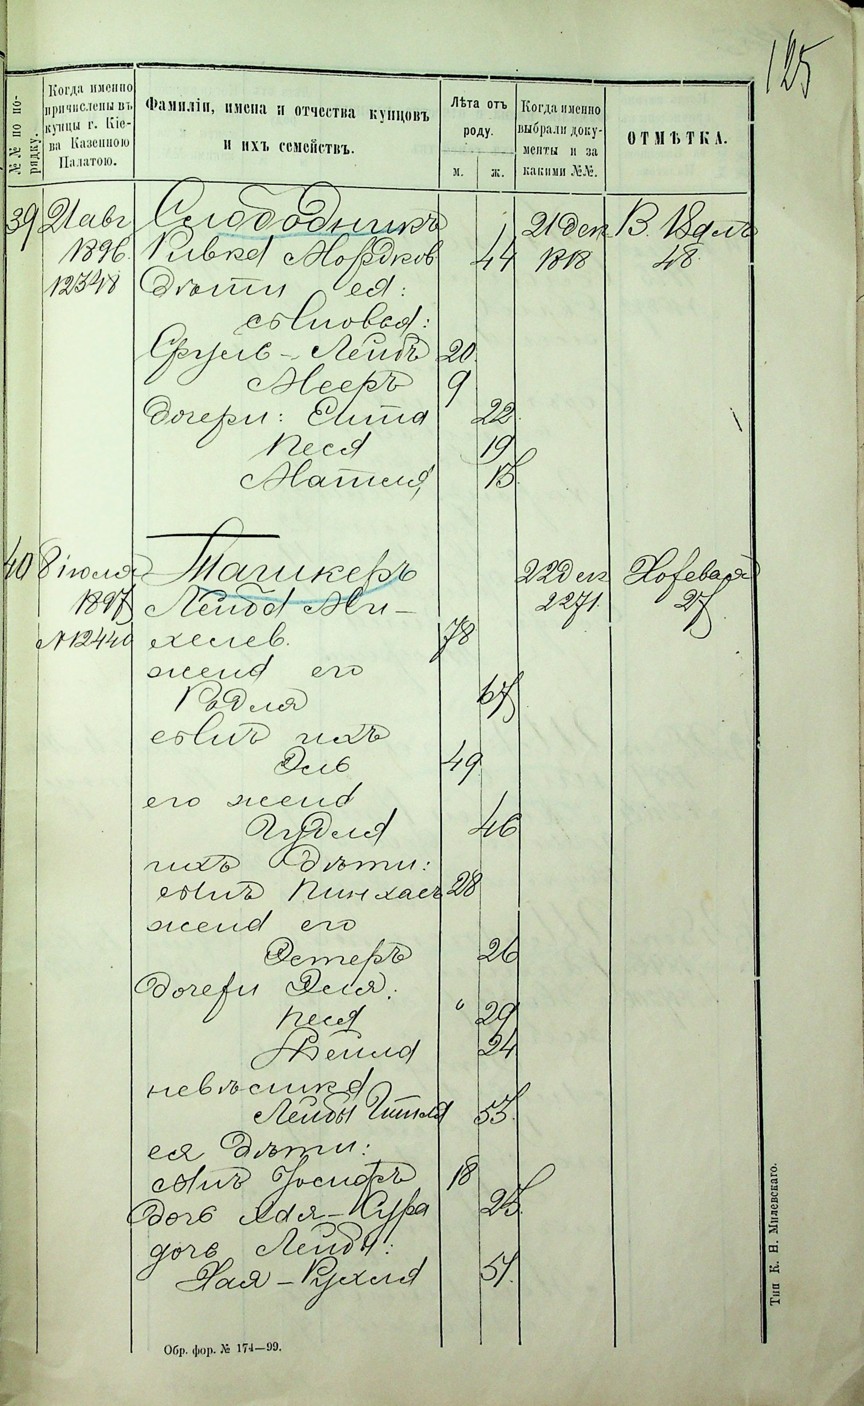 125
№№ по по-
рядку.
Когда именно
причислены въ
купцы г. Кіе-
ва Казенною
Палатою.
Фамиліи, имена и отчества купцовъ
и ихъ семействъ.
Лѣта отъ
роду.
м. ж.
Когда именно
выбрали доку-
менты и за
какими №№.
ОТМѢТКА.
39 21 авг Слободникъ 21 Дек
1896 Ривка Мордков 44 1818 48
12348 Дѣти ея:
сыновья:
Сруль-Лейбъ 20
Мееръ 9
Дочери: Ента 22
Песя 19
Матля 13
40 8 іюля Ташкеръ 22 Дек Хоревая
1897 Лейба Ми- 2271 27
№ 12440 хелев. 78
жена его
Рѣдля 67
сынъ ихъ
Эль 49
его жена
Гудля 46
ихъ Дѣти:
сынъ Пинхасъ 28
жена его
Эстеръ 26
Дочери Эля:
Песя 29
Бейла 24
невѣстка
Лейбы Гитля 53
ея Дѣти:
сынъ Іосифъ 18
Дочь Хая-Сура 23
дочь Лейбы:
Хая-Рухля 51
Обр. фор. № 174—99.
Тип К. Н. Милевскаго.